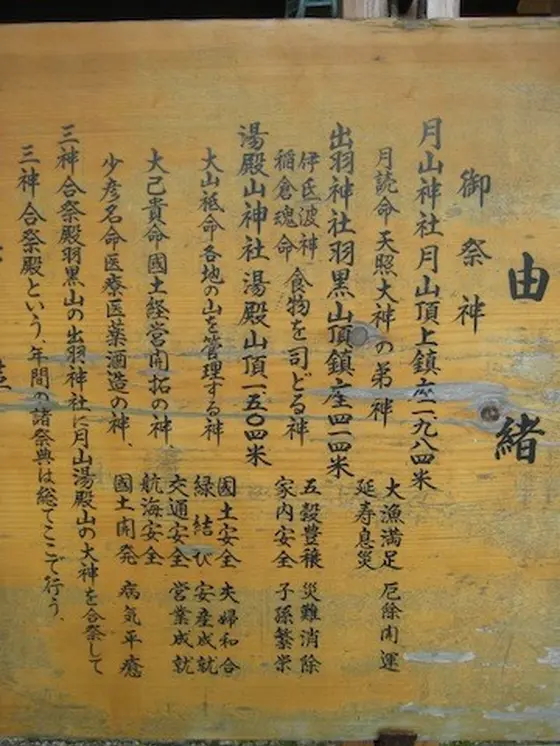 由緒
御祭神
月山神社月山頂上鎮座一、九八四米
月読命 天照大神の弟神
大漁満足 厄除開運
延寿息災
出羽神社羽黒山頂鎮座四一四米
伊氐波神
稲倉魂命 食物を司どる神
五穀豊穣 災難消除
家内安全 子孫繁栄
湯殿山神社 湯殿山頂一五〇四米
大山祗命各地の山を管理する神
國土安全 夫婦和合
緑結び 安産成就
大己貴命國土経営開拓の神、
交通安全 営業成就
航海安全
少彦名命医療医薬酒造の神、
國土開発 病気平癒
三神合祭殿羽黒山の出羽神社に月山湯殿山の大神を合祭して
三神合祭殿という、年間の諸祭典は総てここで行う、